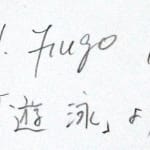 . Fugo
「遊泳」よ